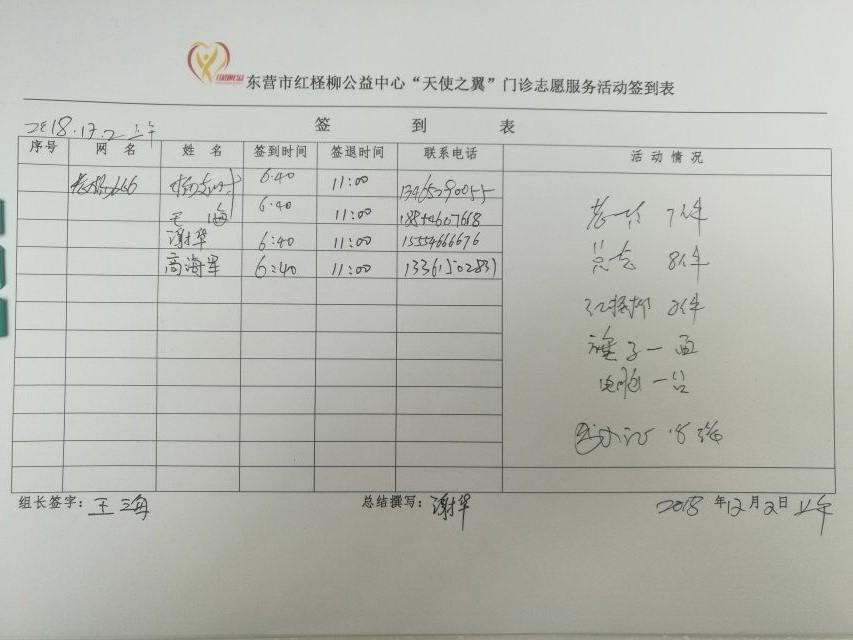 东营市红柽柳公益中心“天使之翼”门诊志愿服务活动签到表
签 到 表
2018.12.2 上午
序号 网 名 姓 名 签到时间 签退时间 联系电话 活 动 情 况
6:40 11:00 13465290055
王 海 6:40 11:00 18844607668
谢华 6:40 11:00 15554666676
高海军 6:40 11:00 13361502831
7件
8件
红柽柳 2件
一面
电脑 一台
8张
组长签字：王海 总结撰写：谢华 2018 年12月2日 上午